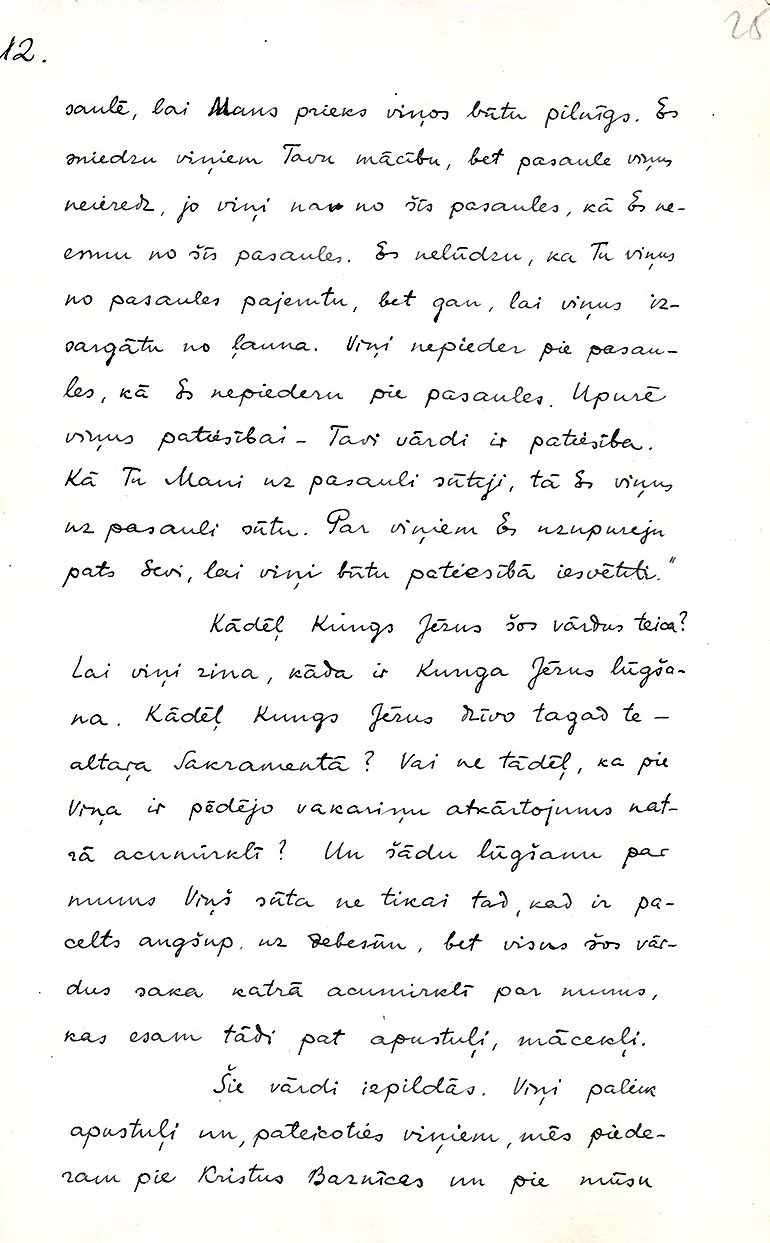 25
12.
saulē, lai Mans prieks viņos būtu pilnīgs. Es
sniedzu viņiem Tavu mācību, bet pasaule viņus
neieredz, jo viņi nav no šīs pasaules, kā Es ne-
esmu no šīs pasaules. Es nelūdzu, ka Tu viņus
no pasaules pajemtu, bet gan, lai viņus iz-
sargātu no ļauna. Viņi nepieder pie pasau-
les, kā Es nepiederu pie pasaules. Upurē
viņus patiesībai – Tavi vārdi ir patiesība.
Kā Tu Mani uz pasauli sūtīji, tā Es viņus
uz pasauli sūtu. Par viņiem Es uzupurēju
pats Sevi, lai viņi būtu patiesībā iesvētīti."
Kādēļ Kungs Jēzus šos vārdus teica?
Lai viņi zina, kāda ir Kunga Jēzus lūgša-
na. Kādēļ Kungs Jēzus dzīvo tagad te –
altaŗa Sakramentā? Vai ne tādēļ, ka pie
Viņa ir pēdējo vakariņu atkārtojums kat-
rā acumirklī? Un šādu lūgšanu par
mums Viņš sūta ne tikai tad, kad ir pa-
celts augšup uz debesīm, bet visus šos vār-
dus saka katrā acumirklī par mums,
kas esam tādi pat apustuļi, mācekļi.
Šie vārdi izpildās. Viņi paliek
apustuļi un, pateicoties viņiem, mēs piede-
ram pie Kristus Baznīcas un pie mūsu